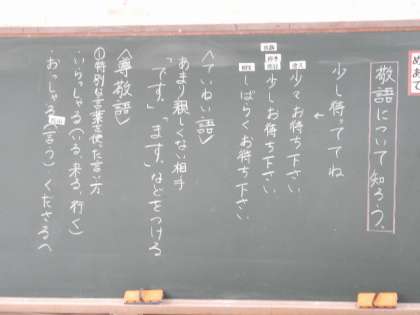 めあて
敬語について知ろう。
少し待っててね
少々お待ち下さい
少しお待ち下さい
しばらくお待ち下さい
〈ていねい語〉
あまり親しくない相手
「です」「ます」などをつける
〈尊敬語〉
①特別な言葉を使った言い方
・いらっしゃる(いる、来る、行く)
・おっしゃる(言う)・くださる(